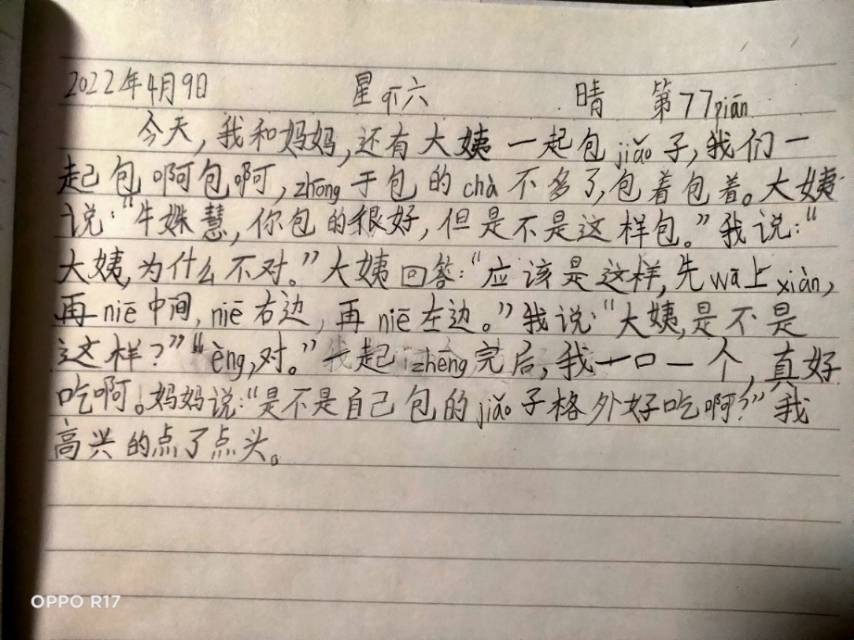 2022年4月9日 星qī六 晴 第77piān
今天,我和妈妈,还有大姨一起包jiǎo子,我们一
起包啊包啊,zhōng于包的chà不多了,包着包着。大姨
说:“牛姝慧,你包的很好,但是不是这样包。”我说:“
大姨,为什么不对。”大姨回答:“应该是这样,先wā上xiàn,
再niē中间,niē右边,再niē左边。”我说:“大姨,是不是
这样?”“èng,对。”一起zhēng完后,我一口一个,真好
吃啊。妈妈说:“是不是自己包的jiǎo子格外好吃啊?”我
高兴的点了点头。
OPPO R17